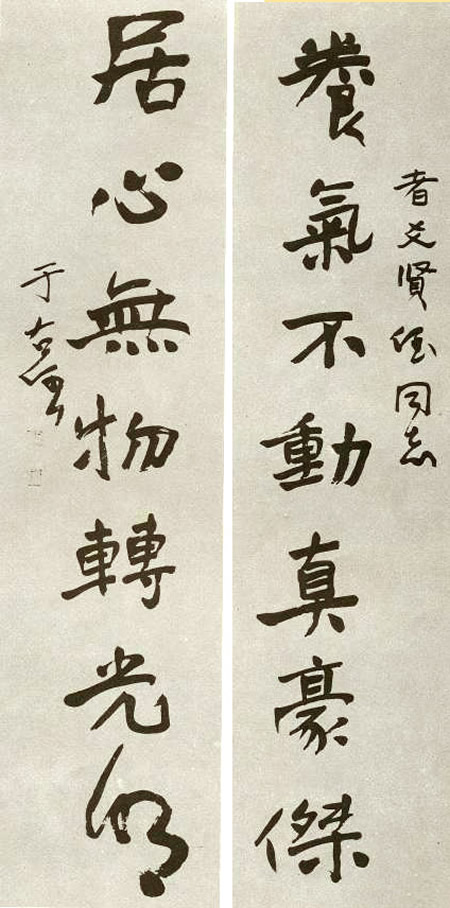 賢侄同志
養氣不動真豪傑
居心無物轉光明
于右任